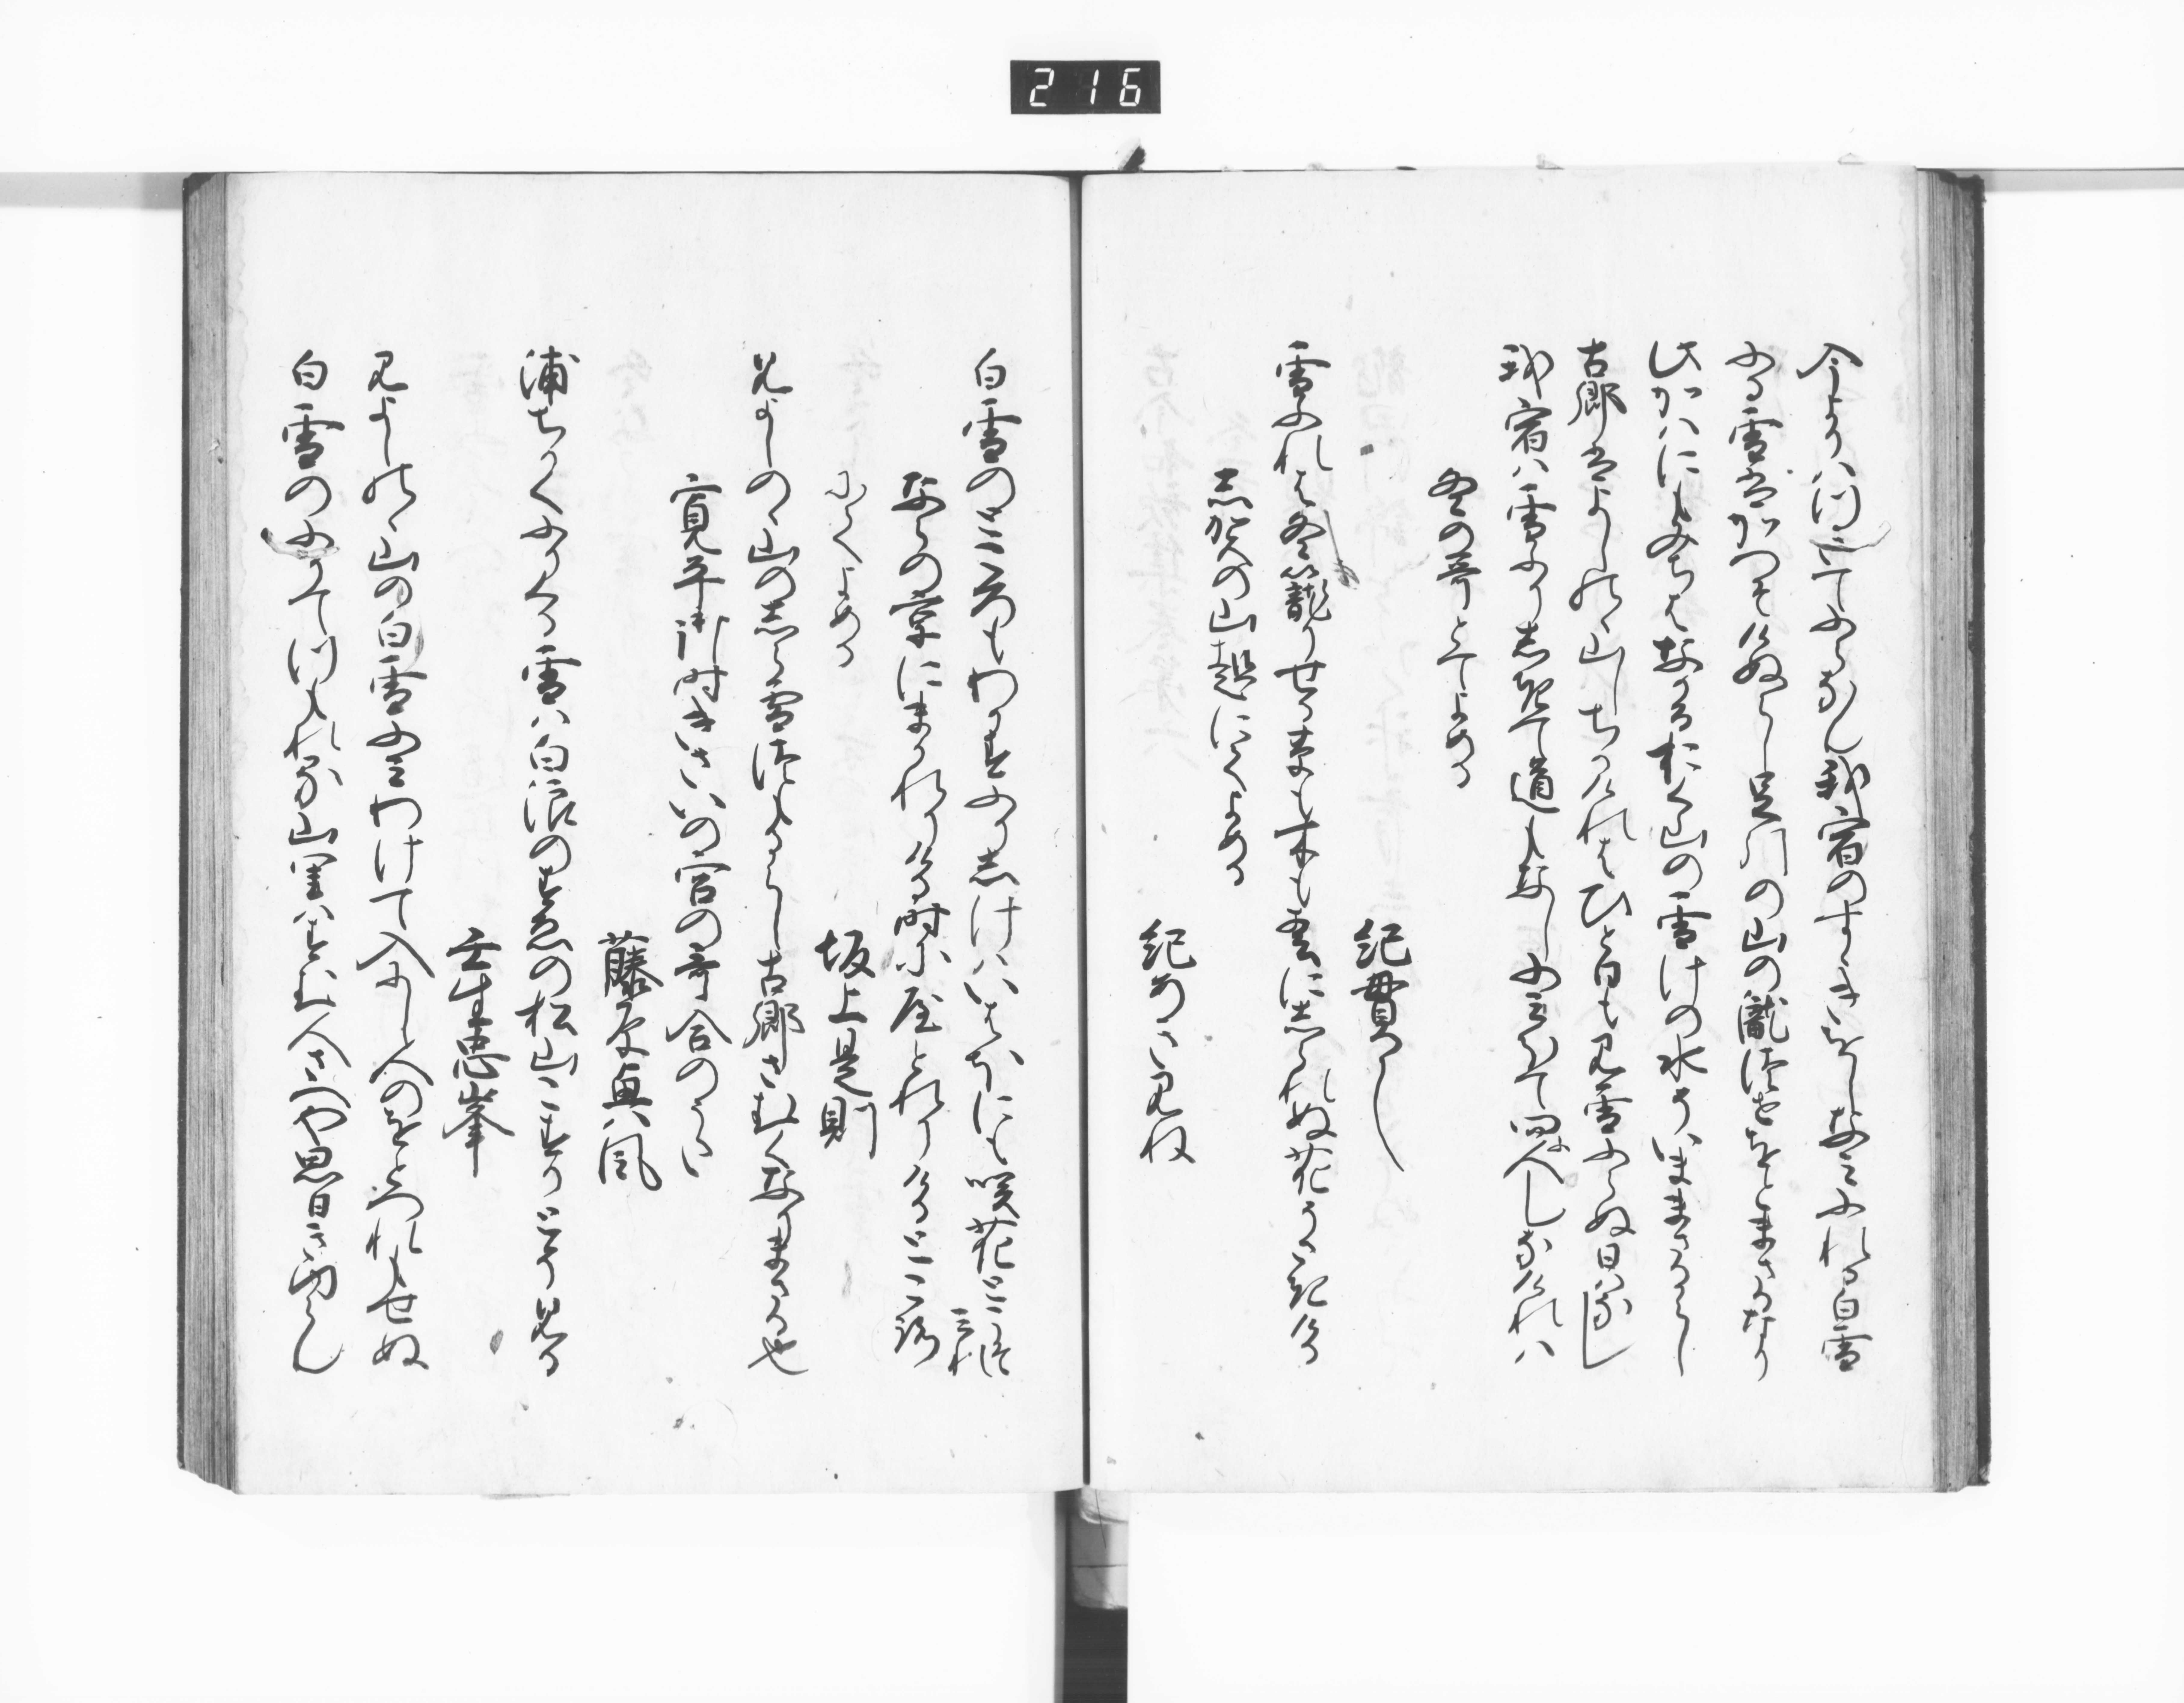 216
今よりはつきてふらなん我宿のすゝきをしなみふれる白雪
ふる雪はかつそけぬらし足引の山の瀧つせをとまさるなり
此かはにもみちはなかるおく山の雪けの水そいままさるらし
古郷はよしのゝ山しちかけれはひと日もみ雪ふらぬ日はなし
我宿は雪ふりしきて道もなしふみわけてとふ人しなけれは
冬の哥とてよめる
紀貫之
雪ふれは冬籠りせる草も木も春にしられぬ花そさきける
志賀の山越にてよめる
紀あきみね
白雪のところもわかすふりしけはいはほにも咲花とこそみれ
ならの京にまかれりける時にやとれりける所
にてよめる
坂上是則
みよしのゝ山のしら雪つもるらし古郷さむくなりまさる也
寛平御時きさいの宮の哥合のうた
藤原興風
浦ちかくふりくる雪は白浪のすゑの松山こすかとそ見る
壬生忠峯
みよしのゝ山の白雪ふみわけて入にし人のをとつれもせぬ
白雪のふりてつもれる山里はすむ人さへや思ひきゆらん